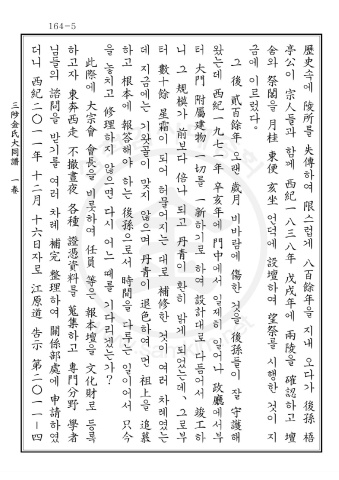 164-5
歷史속에 陵所를 失傳하여 限스럽게 八百餘年을 지내 오다가 後孫 梧
亭公이 宗人들과 함께 西紀一八三八年 戊戌年에 兩陵을 確認하고 壇
舍와 祭閣을 月桂 東便 亥坐 언덕에 設壇하여 望祭를 시행한 것이 지
금에 이르렀다.
그 後 貳百餘年 오랜 歲月 비바람에 傷한 것을 後孫들이 잘 守護해
왔는데 西紀 一九七一年 辛亥年에 門中에서 일제히 일어나 政廳에서부
터 大門 附屬建物 一切를 一新하기로 하여 設計대로 다듬어서 竣工하
니 그 規模가 前보다 倍나 되고 丹靑이 환히 밝게 되었는데、그로부
터 數十餘 星霜이 되어 허물어지는 대로 補修한 것이 여러 차례였는
데 지금에는 기왓골이 맞지 않으며 丹靑이 退色하여 먼 祖上을 追慕
하고 根本에 報答해야 하는 後孫으로서 時間을 다투는 일이어서 只今
을 놓치고 修理하지 않으면 다시 어느 때를 기다리겠는가?
此際에 大宗會 會長을 비롯하여 任員 等은 報本壇을 文化財로 登錄
하고자 東奔西走 不撤晝夜 各種 證憑資料를 蒐集하고 專門分野 學者
님들의 諮問을 받기를 여러 차례 補完 整理하여 關係部處에 申請하였
더니 西紀二〇一一年 十二月 十六日자로 江原道 告示 第二〇一一-四
三陟金氏大同譜 一卷